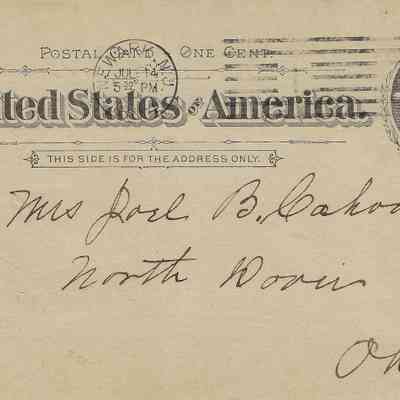 POSTAL CARD, ONE CENT.
NEWARK, N.J.
JUL 14
5 PM
nited States of America.
THIS SIDE IS FOR THE ADDRESS ONLY.
Mrs Joel B. Cahoo
North Dover